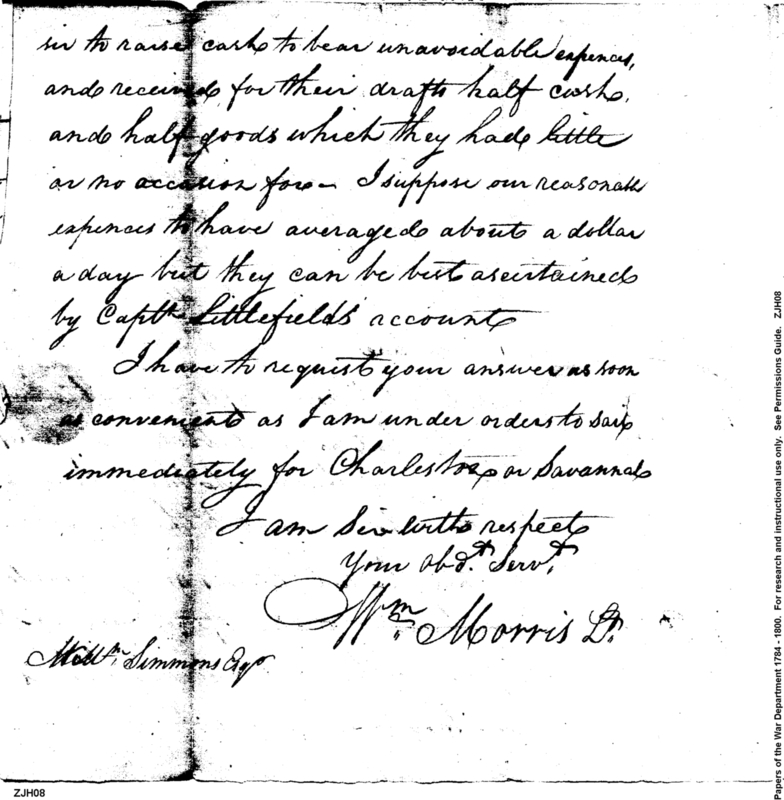 sir to raise cash to bear unavoidable expences,
and received for their drafts half cash,
and half goods which they had little
or no occasion for— I suppose our reasonable
expences to have averaged about a dollar
a day but they can be best ascertained
by Captn Littlefield's account
I have to request your answer as soon
as convenient as I am under orders to sail
immediately for Charleston or Savannah
I am Sir with respect
Your Obdt. Servt.
Wm. Morris Lt.
Simmons Esqr
ZJH08
Papers of the War Department 1784 - 1800. For research and instructional use only. See Permissions Guide. ZJH08